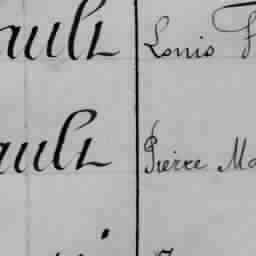 ault Louis
ault Pierre Ma